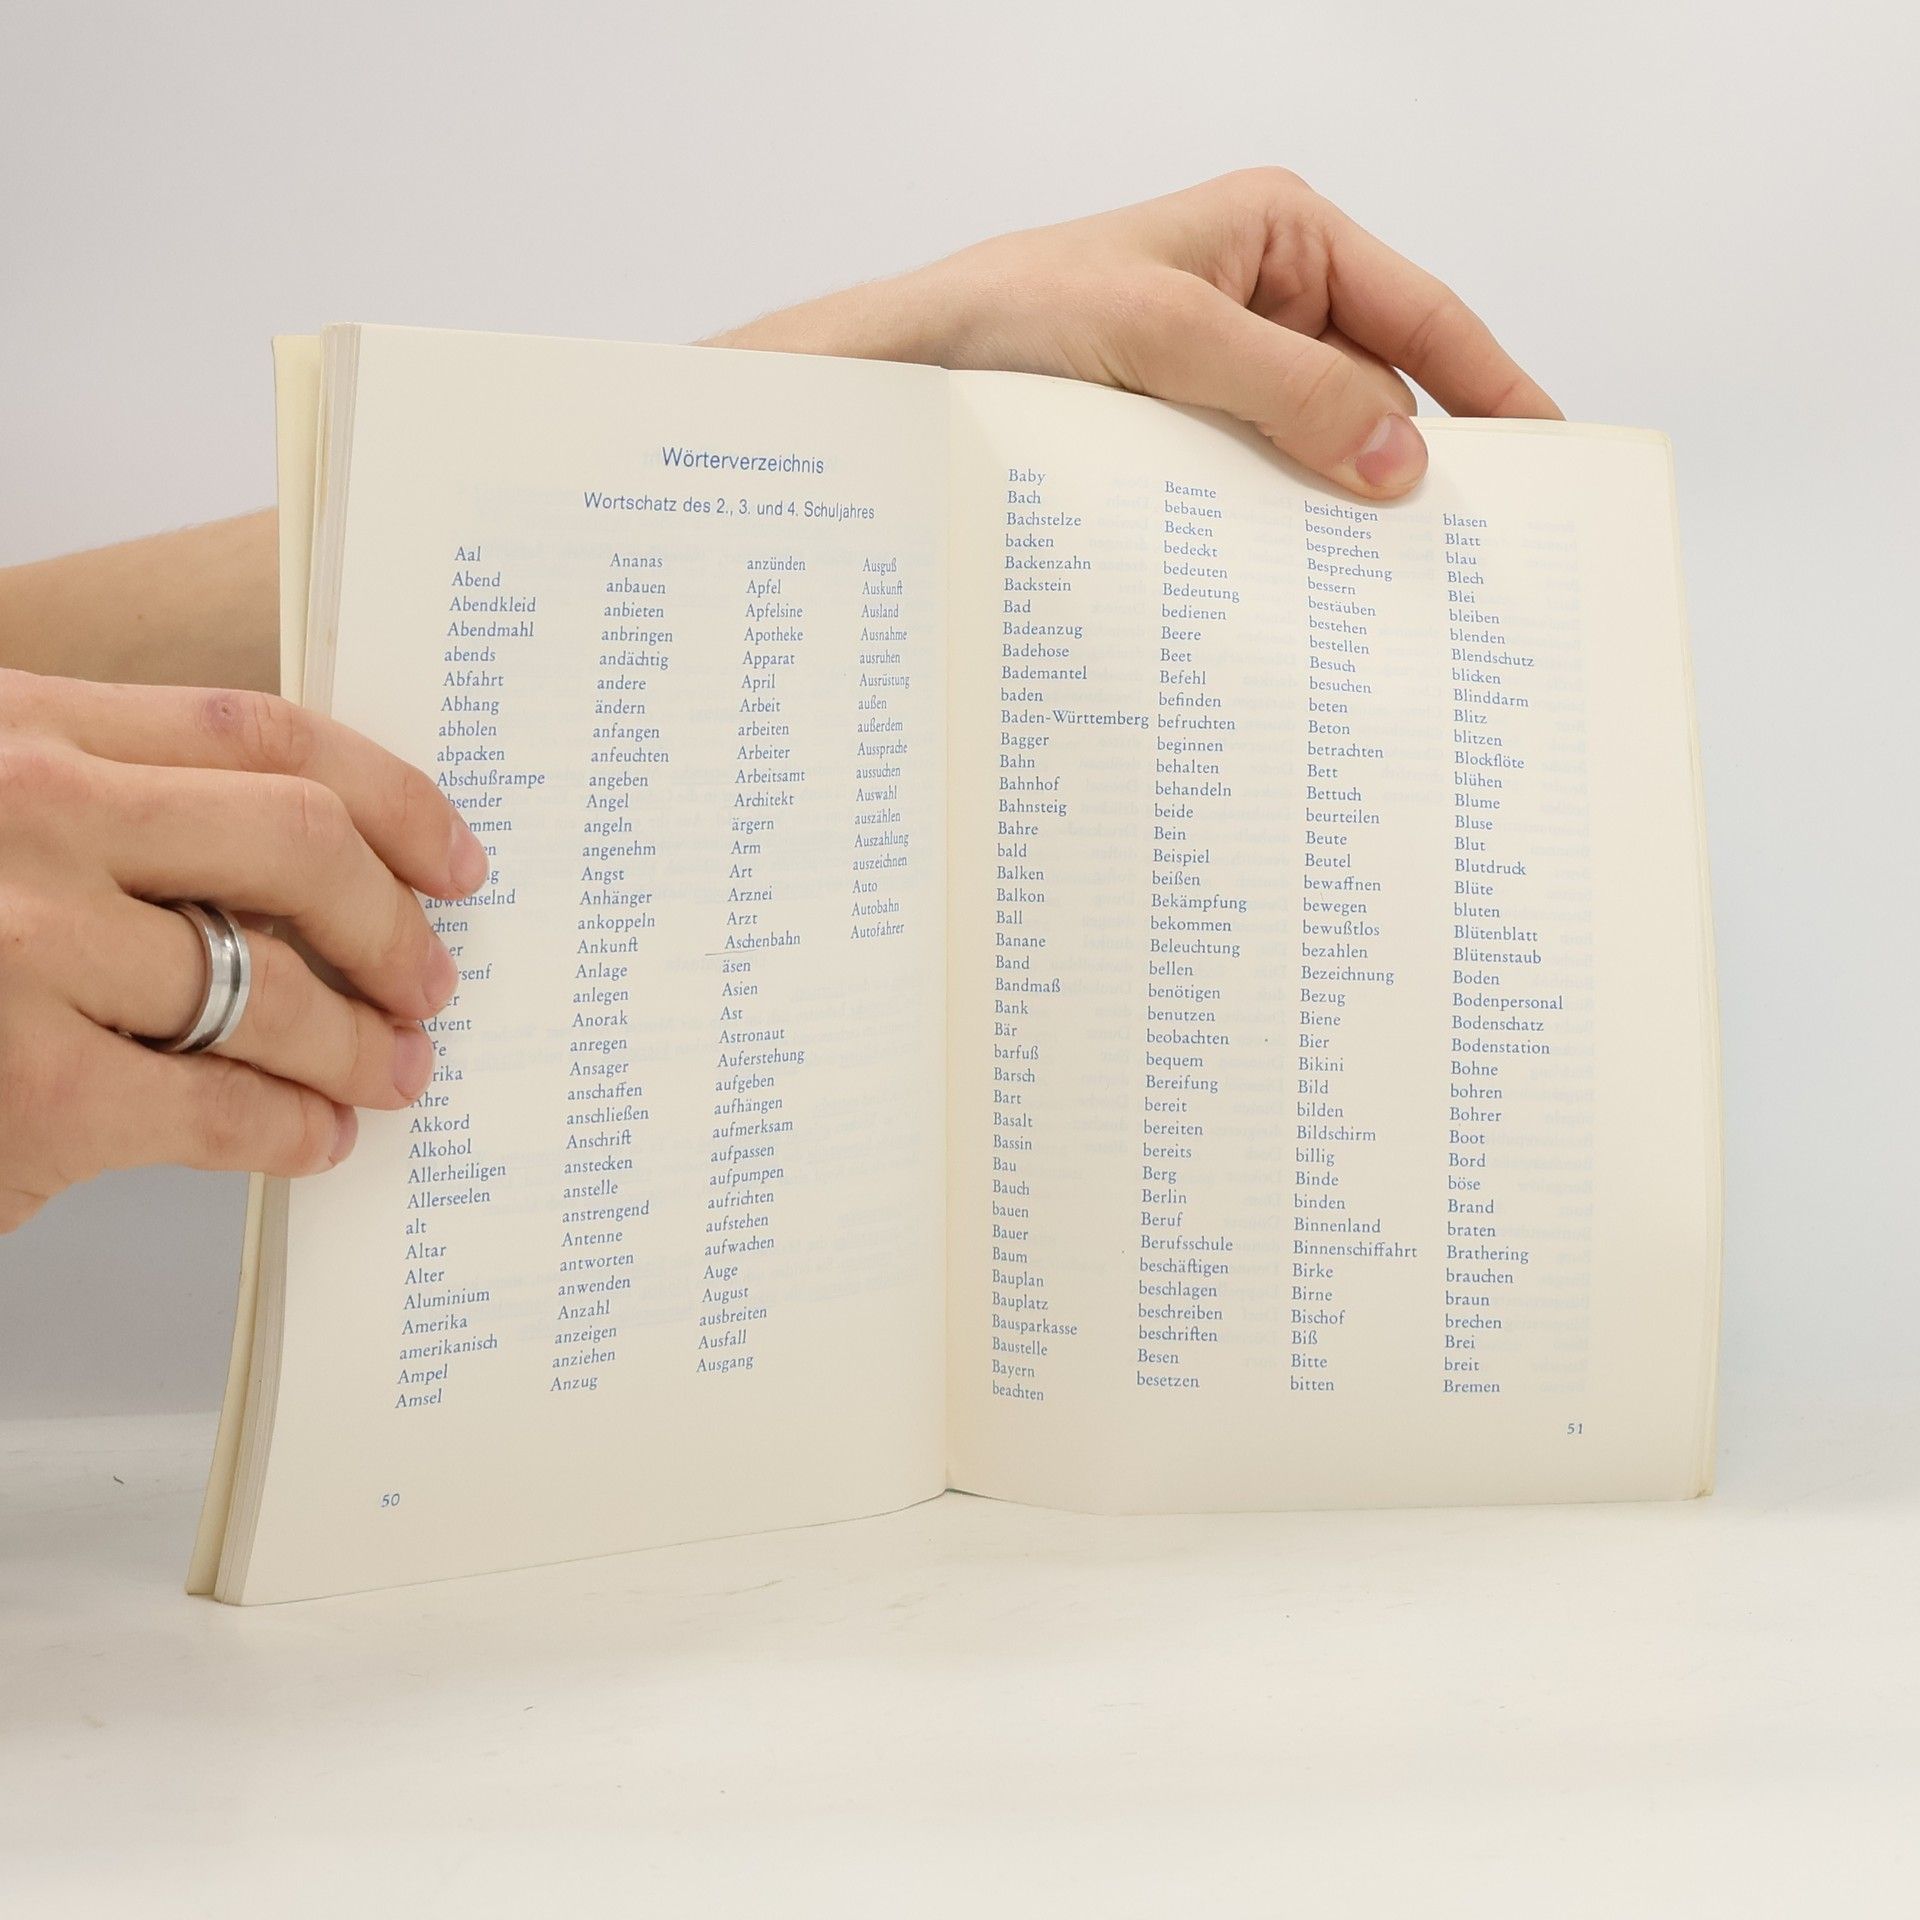 Wörterverzeichnis
Wortschatz des 2., 3. und 4. Schuljahres
Aal
Abend
Abendkleid
Abendmahl
abends
Abfahrt
Abhang
abholen
abpacken
Abschußrampe
abwechselnd
Advent
Ähre
Akkord
Alkohol
Allerheiligen
Allerseelen
alt
Altar
Alter
Aluminium
Amerika
amerikanisch
Ampel
Amsel
Ananas
anbauen
anbieten
anbringen
andächtig
andere
ändern
anfangen
anfeuchten
angeben
Angel
angeln
angenehm
Angst
Anhänger
ankoppeln
Ankunft
Anlage
anlegen
Anorak
anregen
Ansager
anschaffen
anschließen
Anschrift
anstecken
anstelle
anstrengend
Antenne
antworten
anwenden
Anzahl
anzeigen
anziehen
Anzug
anzünden
Apfel
Apfelsine
Apotheke
Apparat
April
Arbeit
arbeiten
Arbeiter
Arbeitsamt
Architekt
ärgern
Arm
Art
Arznei
Arzt
Aschenbahn
äsen
Asien
Ast
Astronaut
Auferstehung
aufgeben
aufhängen
aufmerksam
aufpassen
aufpumpen
aufrichten
aufstehen
aufwachen
Auge
August
ausbreiten
Ausfall
Ausgang
Ausguß
Auskunft
Ausland
Ausnahme
ausruhen
Ausrüstung
außen
außerdem
Aussprache
aussuchen
Auswahl
auszählen
Auszahlung
auszeichnen
Auto
Autobahn
Autofahrer
50
Baby
Bach
Bachstelze
backen
Backenzahn
Backstein
Bad
Badeanzug
Badehose
Bademantel
baden
Baden-Württemberg
Bagger
Bahn
Bahnhof
Bahnsteig
Bahre
bald
Balken
Balkon
Ball
Banane
Band
Bandmaß
Bank
Bär
barfuß
Barsch
Bart
Basalt
Bassin
Bau
Bauch
bauen
Bauer
Baum
Bauplan
Bauplatz
Bausparkasse
Baustelle
Bayern
beachten
Beamte
bebauen
Becken
bedeckt
bedeuten
Bedeutung
bedienen
Beere
Beet
Befehl
befinden
befruchten
beginnen
behalten
behandeln
beide
Bein
Beispiel
beißen
Bekämpfung
bekommen
Beleuchtung
bellen
benötigen
benutzen
beobachten
bequem
Bereifung
bereit
bereiten
bereits
Berg
Berlin
Beruf
Berufsschule
beschäftigen
beschlagen
beschreiben
beschriften
Besen
besetzen
besichtigen
besonders
besprechen
Besprechung
bessern
bestäuben
bestehen
bestellen
Besuch
besuchen
beten
Beton
betrachten
Bett
Bettuch
beurteilen
Beute
Beutel
bewaffnen
bewegen
bewußtlos
bezahlen
Bezeichnung
Bezug
Biene
Bier
Bikini
Bild
bilden
Bildschirm
billig
Binde
binden
Binnenland
Binnenschiffahrt
Birke
Birne
Bischof
Biß
Bitte
bitten
blasen
Blatt
blau
Blech
Blei
bleiben
blenden
Blendschutz
blicken
Blinddarm
Blitz
blitzen
Blockflöte
blühen
Blume
Bluse
Blut
Blutdruck
Blüte
bluten
Blütenblatt
Blütenstaub
Boden
Bodenpersonal
Bodenschatz
Bodenstation
Bohne
bohren
Bohrer
Boot
Bord
böse
Brand
braten
Brathering
brauchen
braun
brechen
Brei
breit
Bremen
51